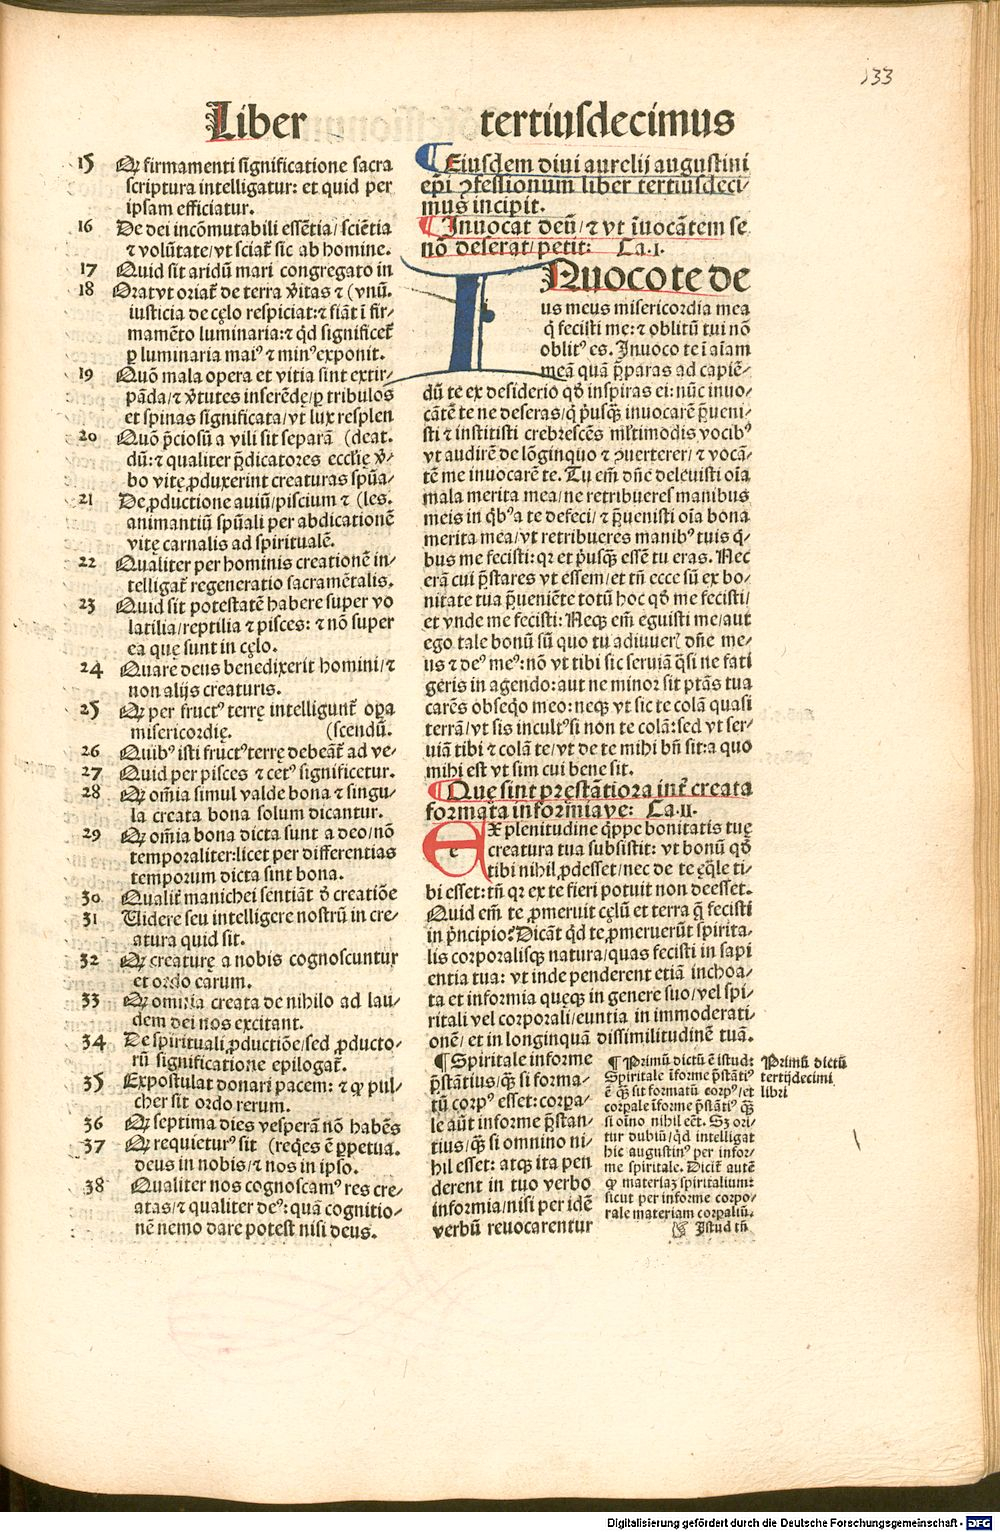 133
Liber tertiusdecimus
15 Qꝫ firmamenti significatione sacra
scriptura intelligatur: et quid per
ipsam efficiatur.
16 De dei incōmutabili essētia/ sciētia
⁊ volūtate/ vt sciat᷑ sic ab homine.
17 Quid sit aridū mari congregato in
18 Orat vt oriat᷑ de terra v̄itas ⁊ (vnū.
iusticia de cęlo respiciat: ⁊ fiāt ī fir-
mamēto luminaria: ⁊ qd̄ significet᷑
ꝑ luminaria maiꝰ ⁊ minꝰ exponit.
19 Quō mala opera et vitia sint extir-
pāda/ ⁊ v̄tutes inserēdę/ ꝑ tribulos
et spinas significata/ vt lux resplen
20 Quō p̄ciosū a vili sit separā (deat.
dū: ⁊ qualiter p̄dicatores ecclię v̄-
bo vitę ꝓduxerint creaturas spūa-
21 De ꝓductione auiū/ piscium ⁊ (les.
animantiū spūali per abdicationē
vitę carnalis ad spiritualē.
22 Qualiter per hominis creationē in-
telligat᷑ regeneratio sacramētalis.
23 Quid sit potestatē habere super vo
latilia/ reptilia ⁊ pisces: ⁊ nō super
ea quę sunt in cęlo.
24 Quare deus benedixerit homini/ ⁊
non alijs creaturis.
25 Qꝫ per fructꝰ terrę intelligunt᷑ oꝑa
misericordię. (scendū.
26 Quibꝰ isti fructꝰ terrę debeāt᷑ ad ve-
27 Quid per pisces ⁊ cetꝰ significetur.
28 Qꝫ om̄ia simul valde bona ⁊ singu-
la creata bona solum dicantur.
29 Qꝫ om̄ia bona dicta sunt a deo/ nō
temporaliter: licet per differentias
temporum dicta sint bona.
30 Qualit᷑ manichei sentiāt d̄ creatiōe
31 Uidere seu intelligere nostrū in cre-
atura quid sit.
32 Qꝫ creaturę a nobis cognoscuntur
et ordo earum.
33 Qꝫ omnia creata de nihilo ad lau-
dem dei nos excitant.
34 De spirituali ꝓductiōe/ sed ꝓducto-
rū significatione epilogat᷑.
35 Expostulat donari pacem: ⁊ ꝙ pul-
cher sit ordo rerum.
36 Qꝫ septima dies vesperā nō habēs
37 Qꝫ requieturꝰ sit (reqͥes ē ꝑpetua.
deus in nobis/ ⁊ nos in ipso.
38 Qualiter nos cognoscamꝰ res cre-
atas/ ⁊ qualiter deꝰ: quā cognitio-
nē nemo dare potest nisi deus.
¶ Eiusdem diui aurelij augustini
ep̄i ꝯfessionum liber tertiusdeci-
mus incipit.
¶ Inuocat deū/ ⁊ vt īuocātem se
nō deserat/ petit: Ca. I.
INuoco te de
us meus misericordia mea
q̄ fecisti me: ⁊ oblitū tui nō
oblitꝰ es. Inuoco te ī aīam
meā quā p̄paras ad capiē-
dū te ex desiderio qd̄ inspiras ei: nūc inuo-
cātē te ne deseras/ q̄ pͥusqȝ inuocarē p̄ueni-
sti ⁊ institisti crebrescēs ml̄timodis vocibꝰ
vt audirē de lōginquo ⁊ ꝯuerterer/ ⁊ vocā-
tē me inuocarē te. Tu em̄ dn̄e deleuisti oīa
mala merita mea/ ne retribueres manibus
meis in qͥbꝰ a te defeci/ ⁊ p̄uenisti oīa bona
merita mea/ vt retribueres manibꝰ tuis qͥ-
bus me fecisti: qꝛ et pͥusqȝ essē tu eras. Nec
erā cui p̄stares vt essem/ et tn̄ ecce sū ex bo-
nitate tua p̄ueniēte totū hoc qd̄ me fecisti/
et vnde me fecisti: Neqȝ em̄ eguisti me/ aut
ego tale bonū sū quo tu adiuuerꝭ dn̄e me-
us ⁊ deꝰ meꝰ: nō vt tibi sic seruiā qͣsi ne fati
geris in agendo: aut ne minor sit ptās tua
carēs obseqͦo meo: neqȝ vt sic te colā quasi
terrā/ vt sis incultꝰ si non te colā: sed vt ser-
uiā tibi ⁊ colā te/ vt de te mihi bn̄ sit: a quo
mihi est vt sim cui bene sit.
¶ Quę sint pręstātiora int᷑ creata
formata informiave: Ca. II.
EX plenitudine qͥppe bonitatis tuę
creatura tua subsistit: vt bonū qd̄
tibi nihil ꝓdesset/ nec de te ęqͣle ti-
bi esset: tn̄ qꝛ ex te fieri potuit non deesset.
Quid em̄ te ꝓmeruit cęlū et terra q̄ fecisti
in pͥncipio? Dicāt qd̄ te ꝓmeruerūt spirita-
lis corporalisqȝ natura/ quas fecisti in sapi
entia tua: vt inde penderent etiā inchoa-
ta et informia queqȝ in genere suo/ vel spi-
ritali vel corporali/ euntia in immoderati-
onē/ et in longinquā dissimilitudinē tuā.
¶ Spiritale informe
p̄stātius/ qȝ si forma-
tū corpꝰ esset: corpa-
le aūt informe p̄stan-
tius/ qȝ si omnino ni-
hil esset: atqȝ ita pen
derent in tuo verbo
informia/ nisi per idē
verbū reuocarentur
¶ Primū dictū ē istud:
Spiritale īforme p̄stātiꝰ
ē qȝ sit formatū corpꝰ/ et
corpale īforme p̄stātiꝰ qȝ
si oīno nihil eēt. Sȝ ori-
tur dubiū/ qd̄ intelligat
hic augustinꝰ per infor-
me spiritale. Dicit᷑ autē
ꝙ materiaȝ spiritalium:
sicut per informe corpo-
rale materiam corpaliū.
Istud tn̄
Primū dictū
tertijdecimi
libri
Digitalisierung gefördert durch die Deutsche Forschungsgemeinschaft - DFG